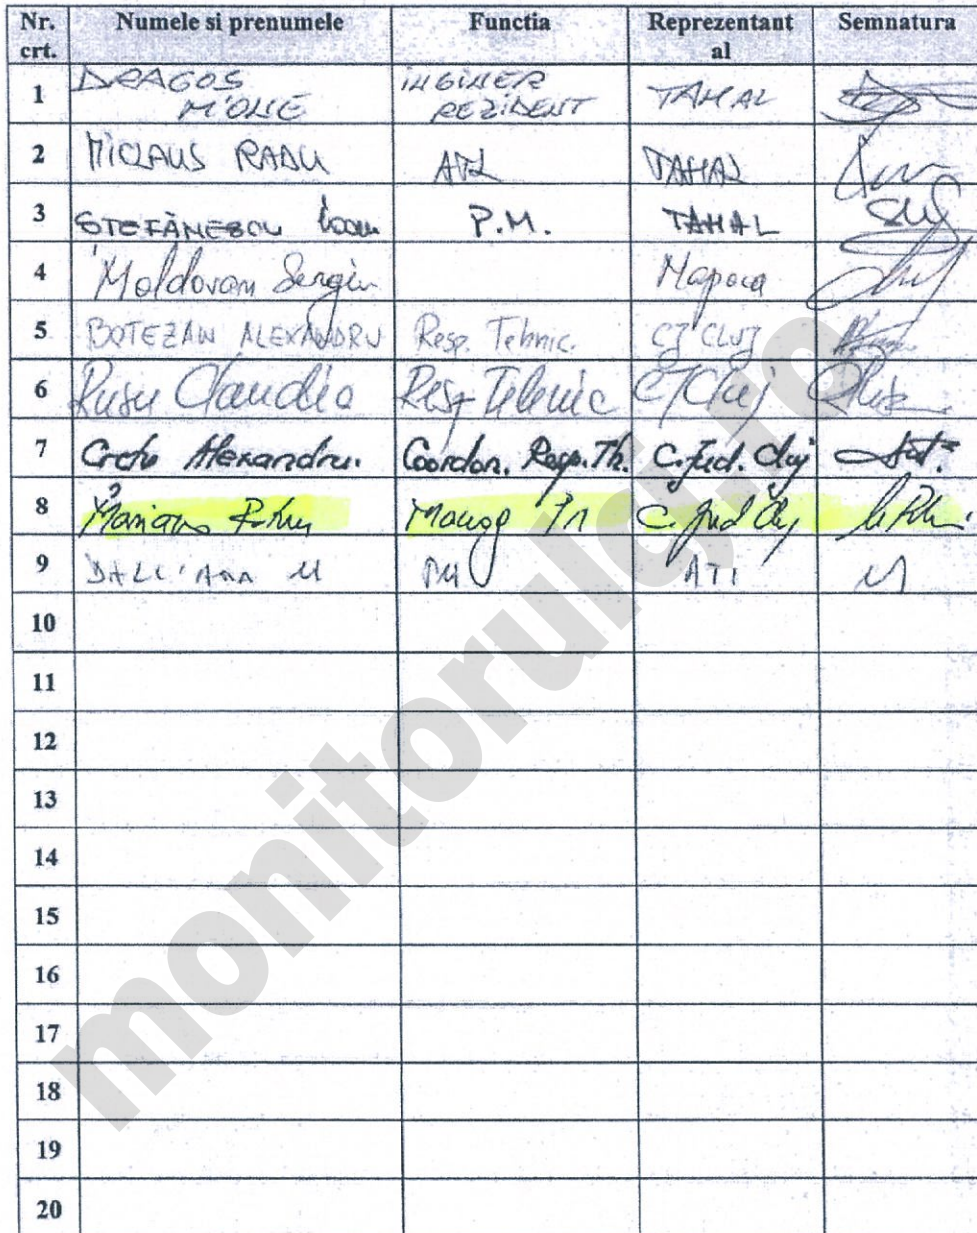 Nr. crt. Numele si prenumele Functia Reprezentant al Semnatura
1 DRAGOS INGINER REZIDENT TAHAL
2 MICLAUS RADU TAHAL
3 STEFĂNESCU Ioan P.M. TAHAL
4 Moldovan Sergiu Napoca
5 BOTEZAN ALEXANDRU Resp. Tehnic. CJ CLUJ
6 Rusu Claudia Resp Tehnic CJ Cluj
7 Cretu Alexandru. Coordon. Resp. Th. C. Jud. Cluj
8 C. Jud Cluj
9 DALL'ARA M PM ATI
10
11
12
13
14
15
16
17
18
19
20
monitorulcj.ro